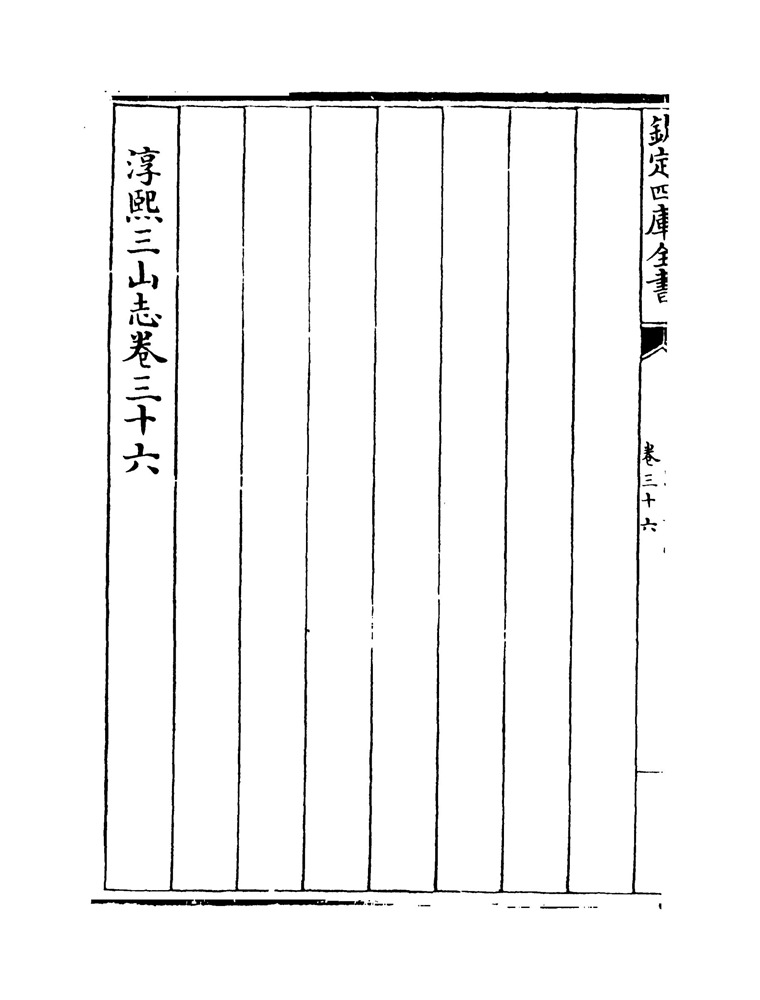 欽定四庫全書
卷三十六
淳熙三山志卷三十六